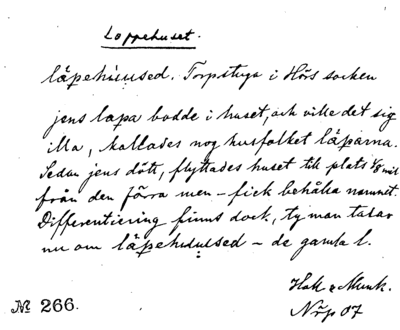 Loppehuset.
läpehúused. Torpstuga i Hörs socken
jens lapa bodde i huset, och ville det sig
illa, kallades nog husfolket läparna.
Sedan jens dött, flyttades huset till plats 1/8 mil
från den förra men – fick behålla namnet.
Differentiering finns dock, ty man talar
nu om läpehuused – de gamla l.
Munk.
Nrp 07
№ 266.